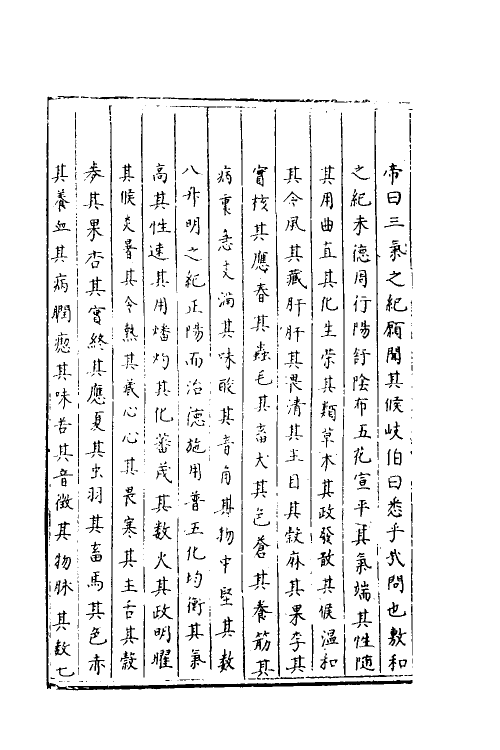 帝曰三氣之紀願聞其候岐伯曰悉乎哉問也敷和
之紀木德周行陽舒陰布五化宣平其氣端其性随
其用曲直其化生榮其類草木其政發散其候温和
其令風其藏肝肝其畏清其主目其穀麻其果李其
實核其應春其蟲毛其畜犬其色蒼其養筋其
病裏急支滿其味酸其音角其物中堅其数
八升明之紀正陽而治德施用普五化均衡其氣
高其性速其用燔灼其化蕃茂其数火其政明曜
其候炎暑其令熱其藏心心其畏寒其主舌其穀
麥其果杏其實絡其應夏其虫羽其畜馬其色赤
其養血其病瞤瘛其味苦其音徵其物脉其数七